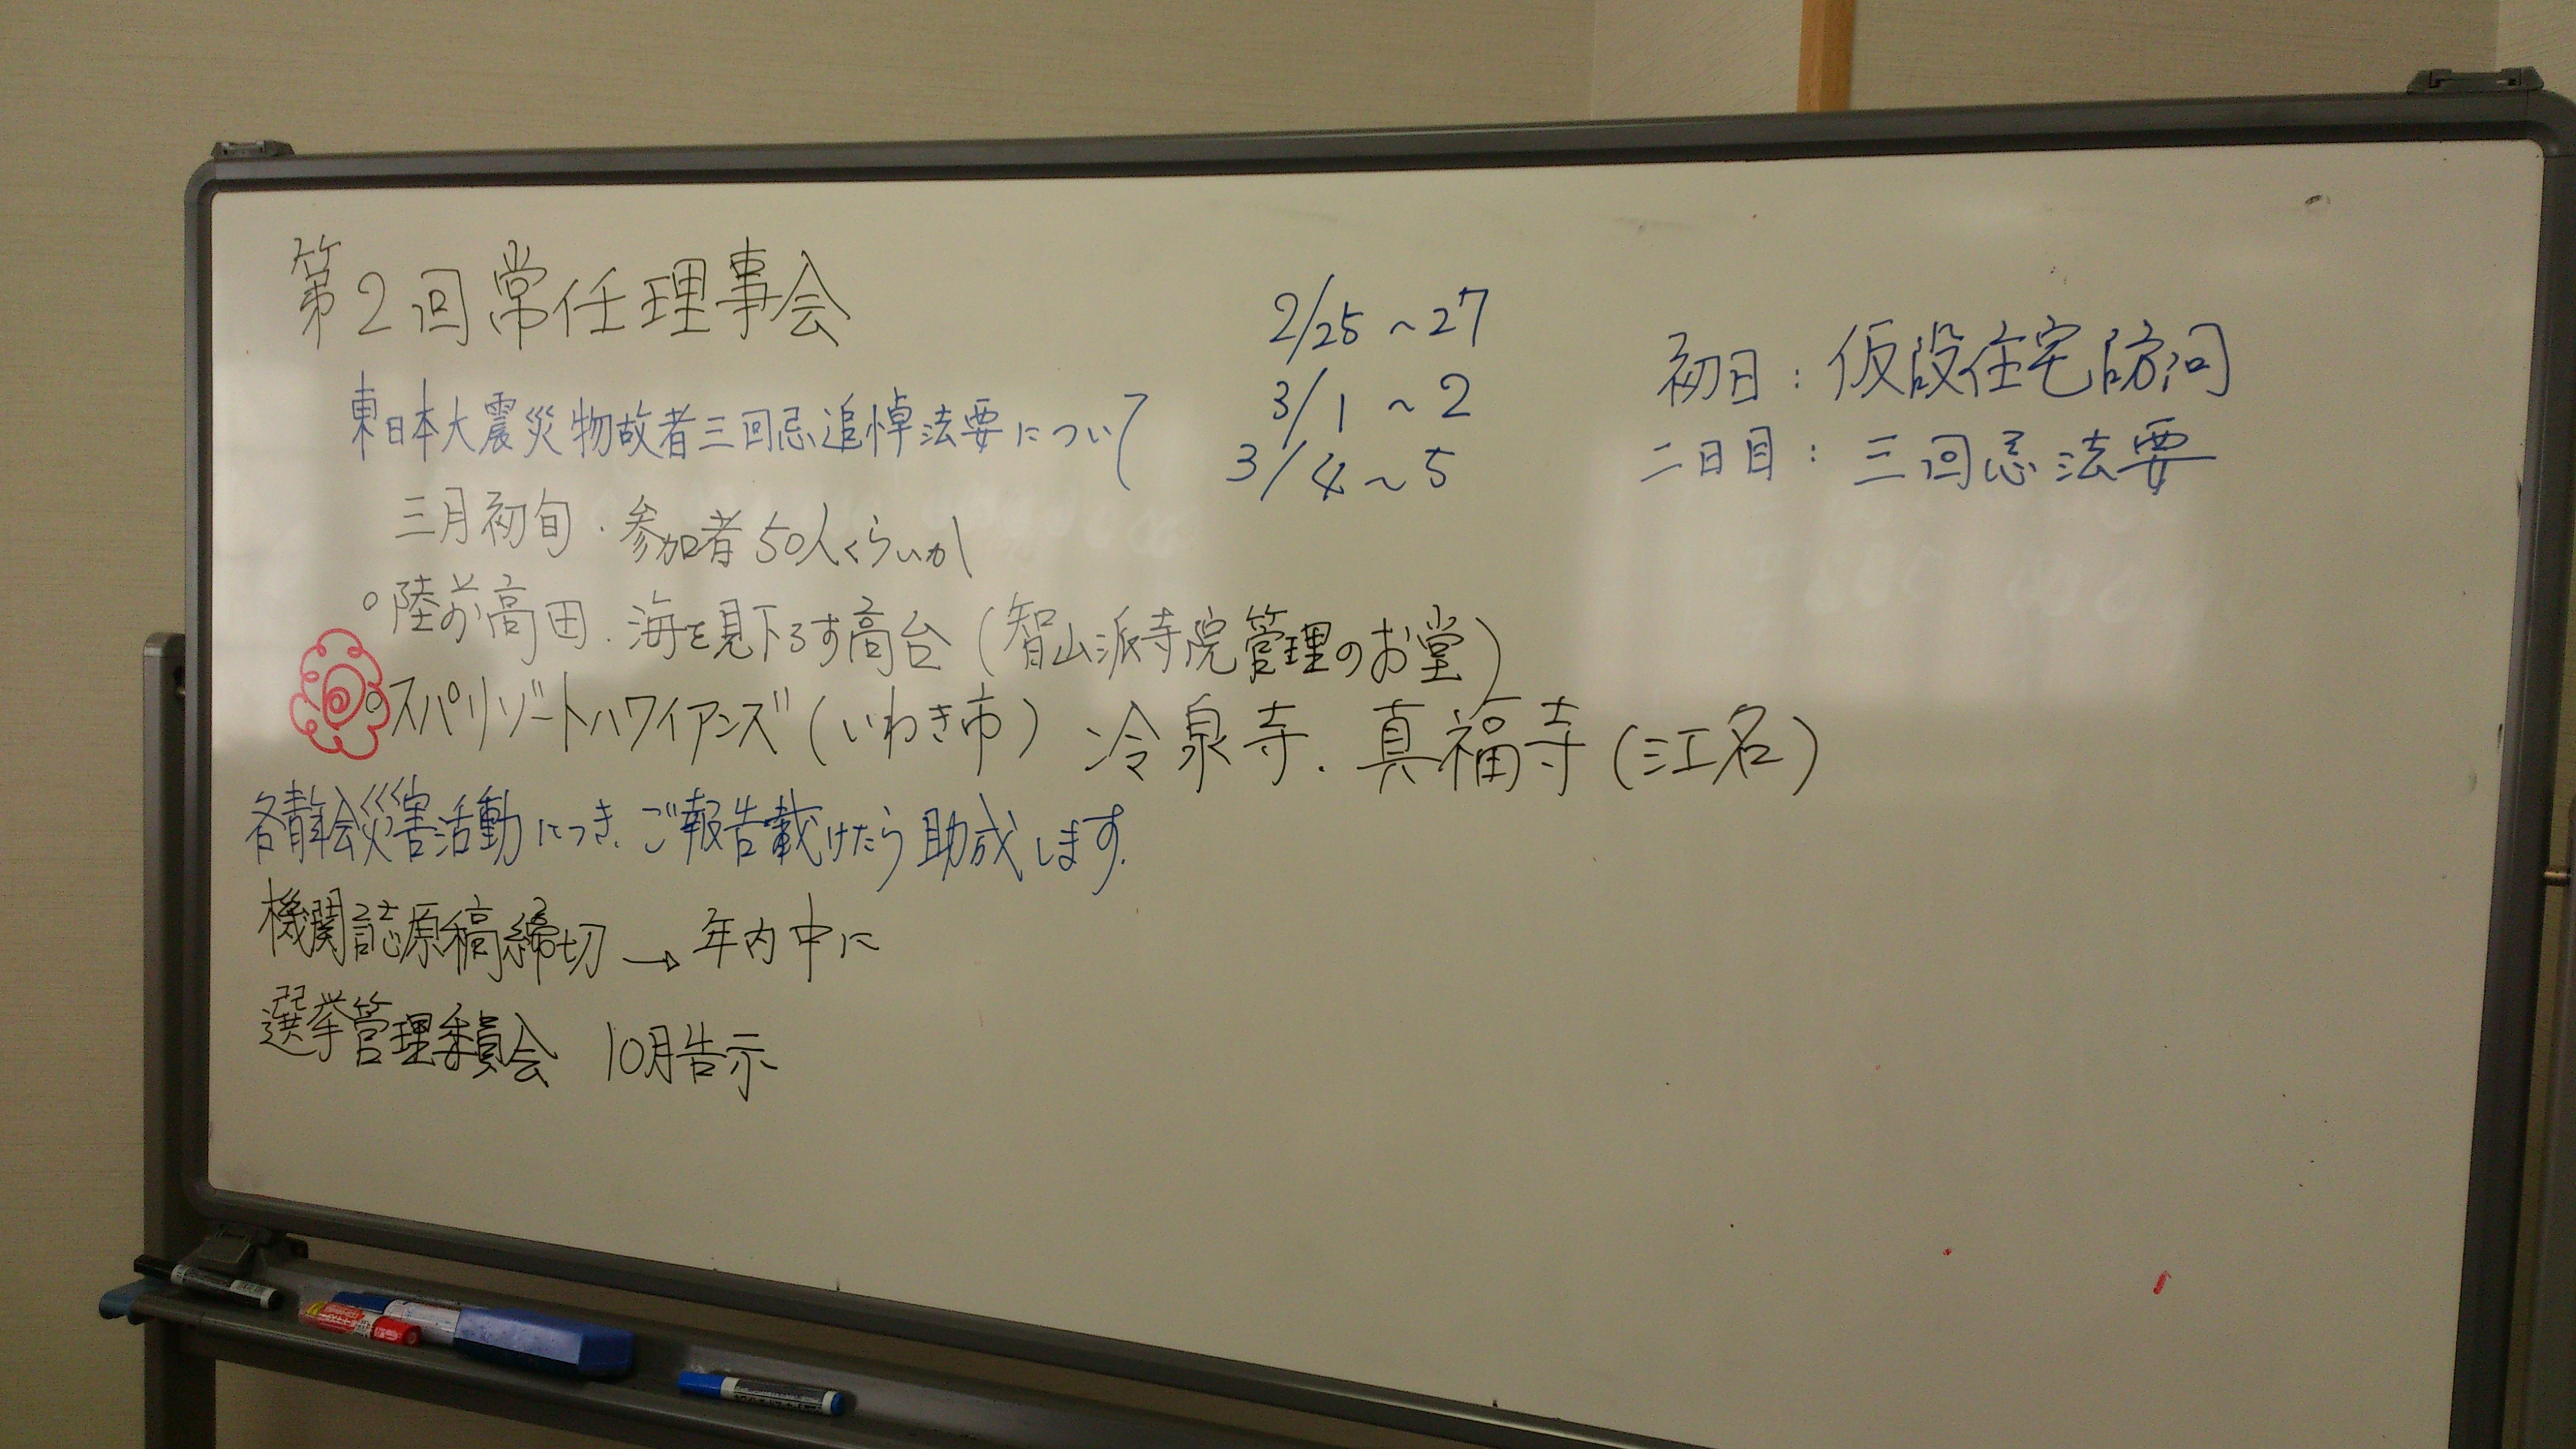 第2回常任理事会
東日本大震災物故者三回忌追悼法要について
2/25～27
3/1～2
3/4～5
初日：仮設住宅訪問
二日目：三回忌法要
三月初旬・参加者50人くらいか
○陸前高田・海を見下ろす高台（智山派寺院管理のお堂）
○スパリゾートハワイアンズ（いわき市）冷泉寺．真福寺（江名）
各青年会災害活動につき、ご報告載けたら助成します．
機関誌原稿締切→年内中に
選挙管理委員会 10月告示